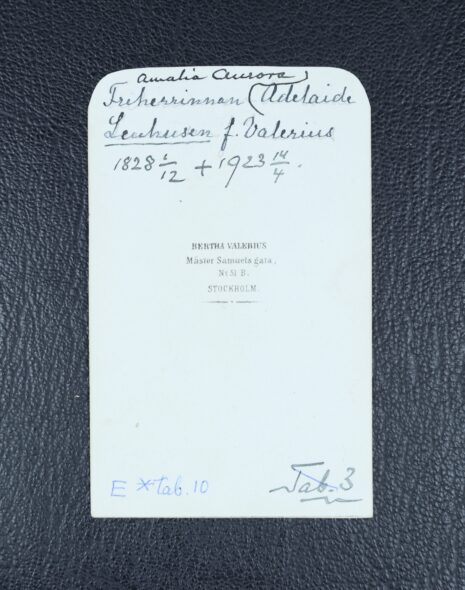 Amalia Aurora)
Friherrinnan (Adelaide
Leuhusen f. Valerius
1828 1/12 + 1923 14/4.
BERTHA VALERIUS
Mäster Samuels gata,
No 51 B.
STOCKHOLM.
E *tab. 10
Tab. 3